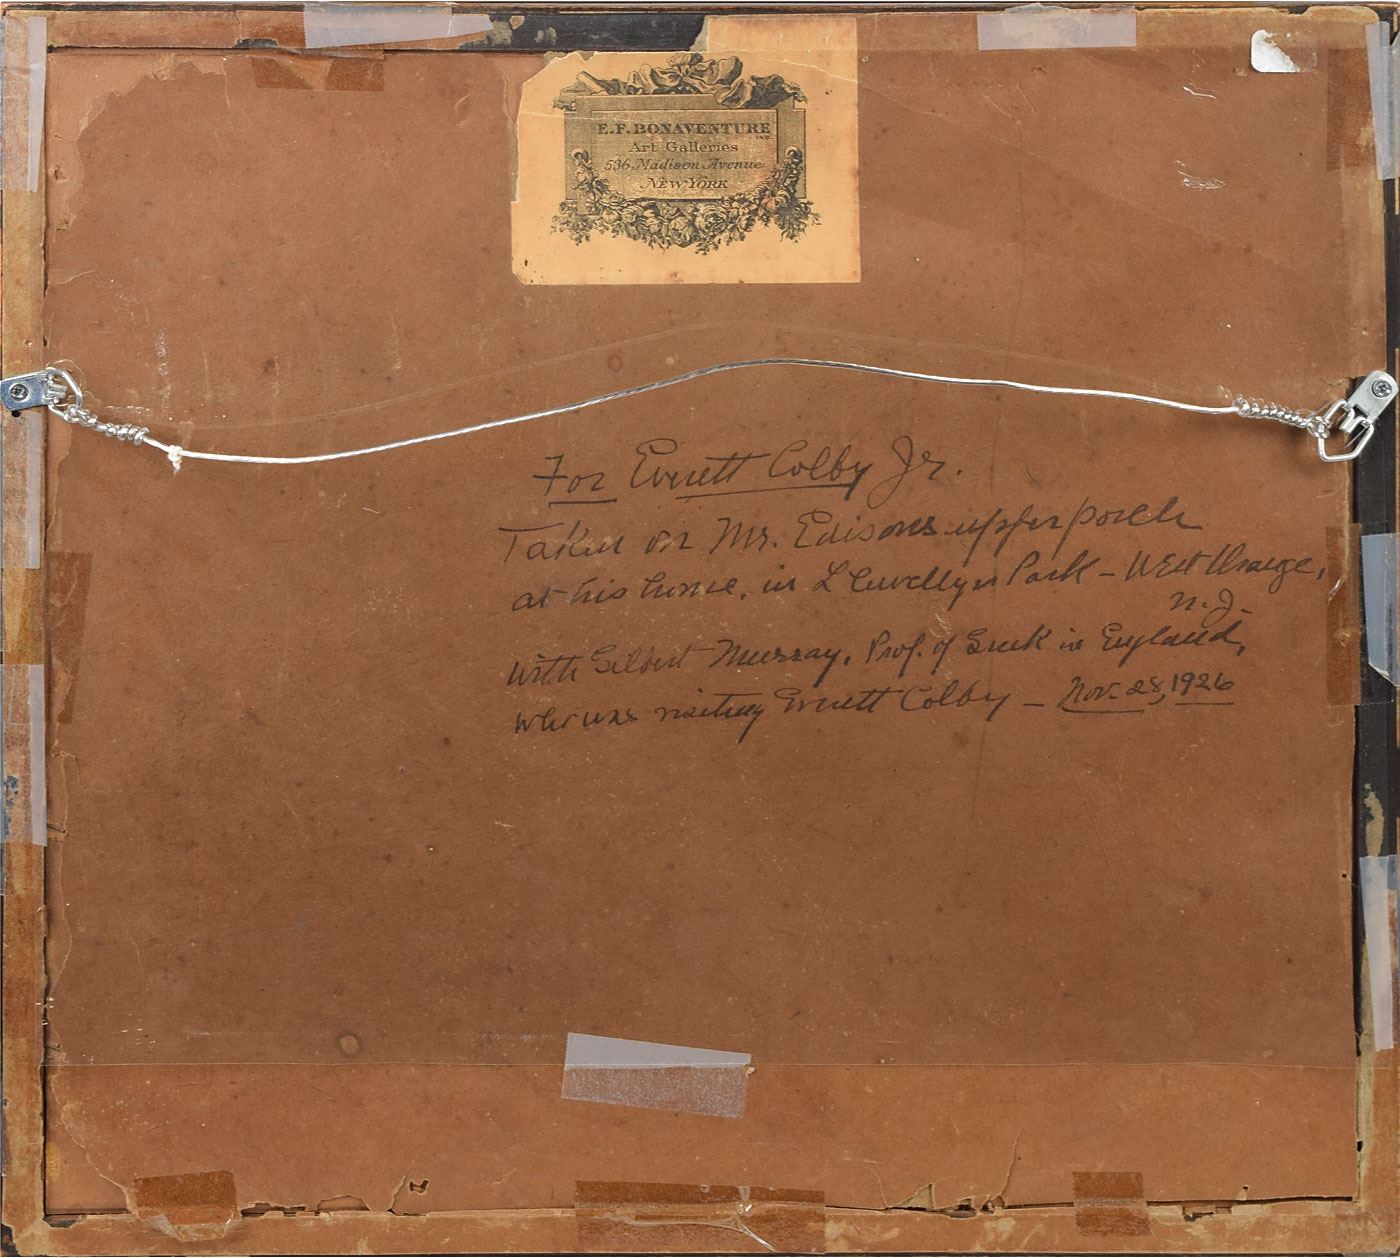 E.F. BONAVENTURE
INC.
Art Galleries
536 Madison Avenue
NEW YORK
For Everett Colby Jr.
Taken on Mr. Edisons upper porch
at his home, in Llewellyn Park – West Orange,
N.J.
with Gilbert Murray, Prof. of Greek in England,
who was visiting Everett Colby – Nov. 28, 1926